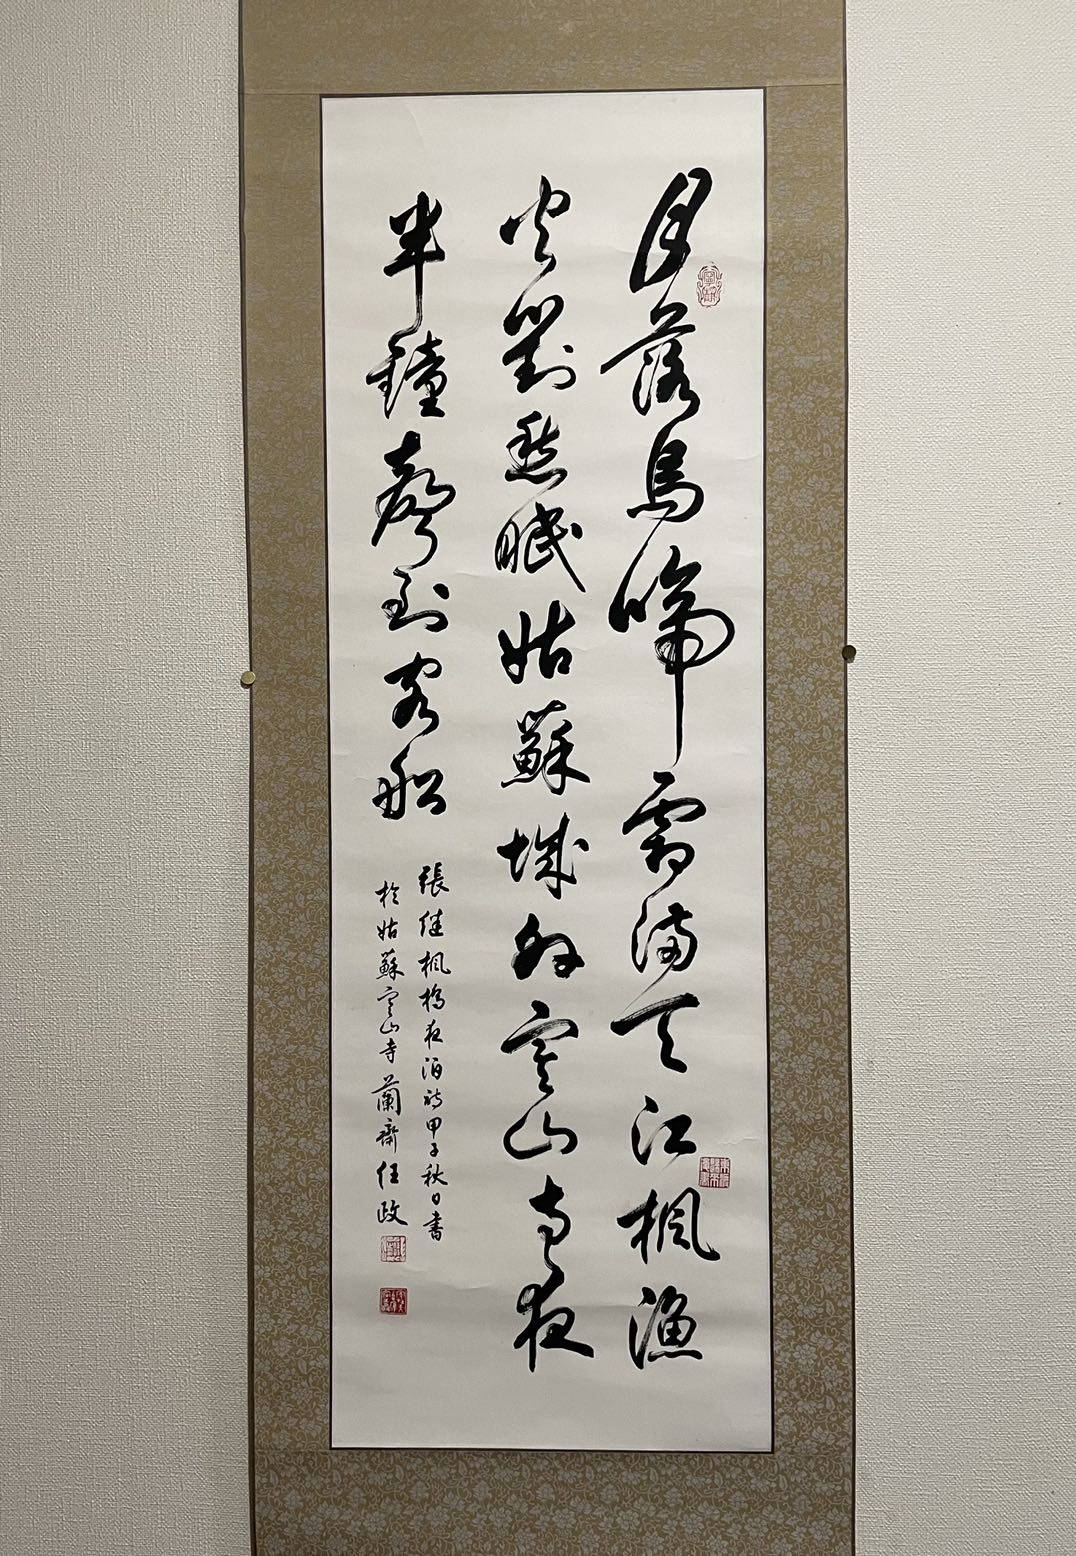 月落烏啼霜満天江楓漁
火對愁眠姑蘇城外寒山寺夜
半鐘聲到客船
張継楓橋夜泊詩甲子秋日書
於姑蘇寒山寺蘭齋任政